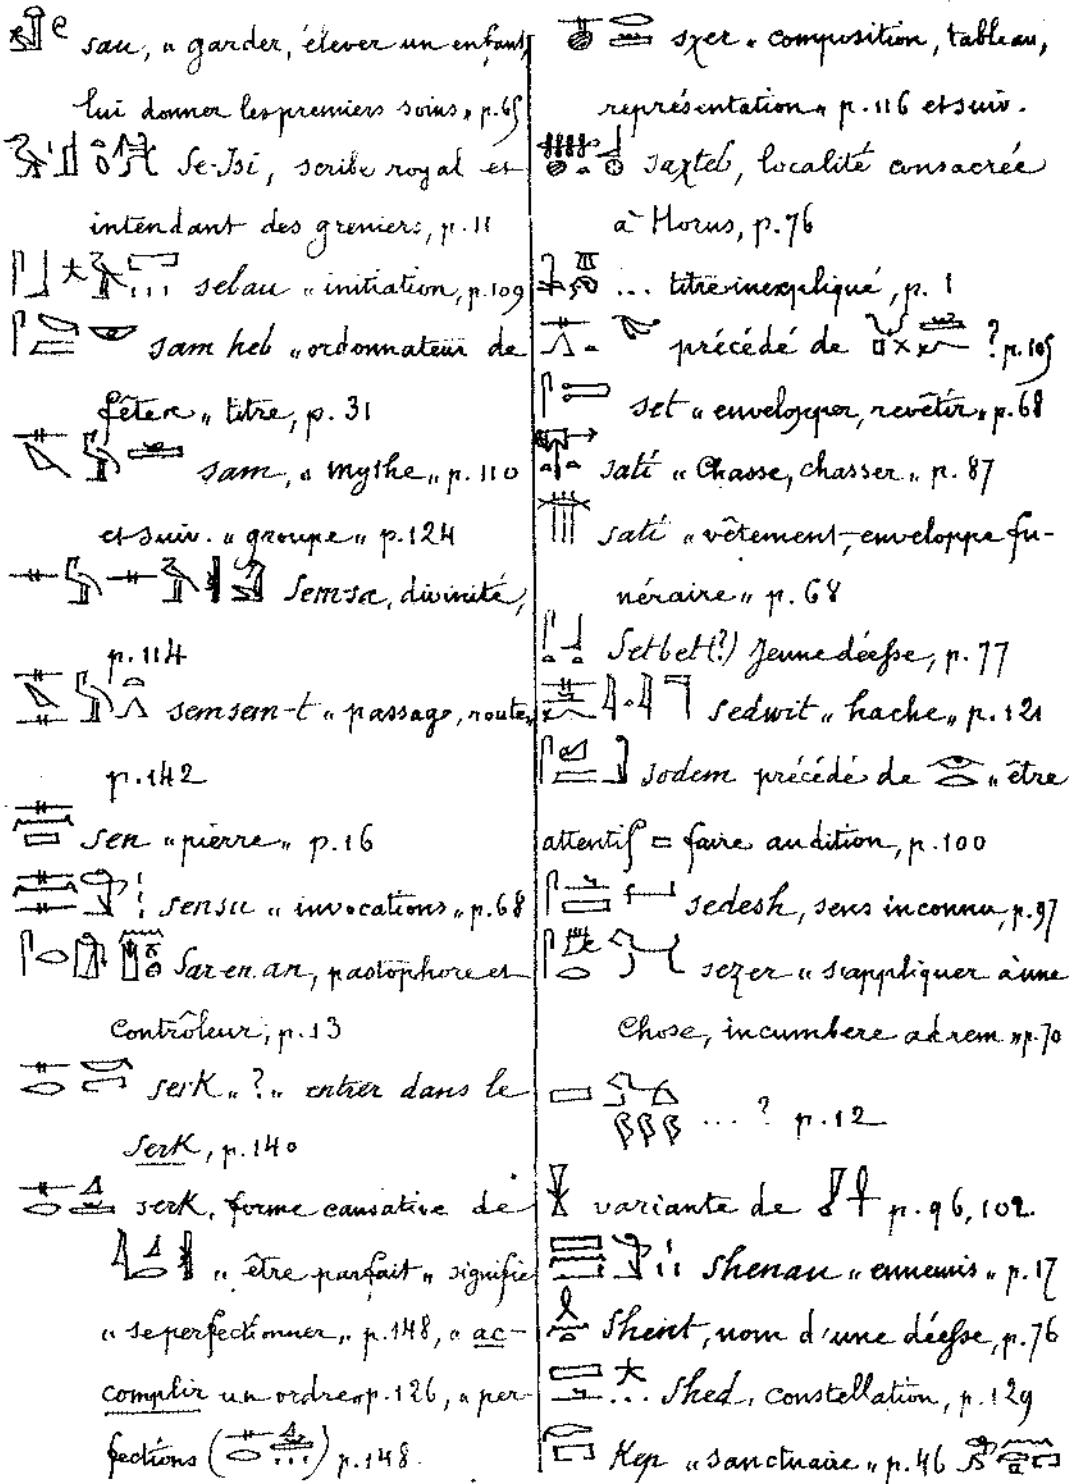 sau, « garder, élever un enfant,
lui donner les premiers soins » p. 65
Se-Isi, scribe royal et
intendant des greniers, p. 11
sebau « initiation, p. 109
sam heb « ordonnateur de
fêtes » titre, p. 31
sam, « mythe » p. 110
et suiv. « groupe » p. 124
Semsa, divinité,
p. 114
semsem-t « passage, route »
p. 142
sen « pierre » p. 16
sensu « invocations » p. 68
Sar-en-an, pastophore et
Contrôleur, p. 13
serk « ? » entrer dans le
Serk, p. 140
serk, forme causative de
« être parfait » signifie
« se perfectionner » p. 148, « ac-
complir un ordre » p. 126, « per-
fections ( ) p. 148.
sχer « composition, tableau,
représentation » p. 116 et suiv.
saχteb, localité consacrée
à Horus, p. 76
... titre inexpliqué, p. 1
précédé de ? p. 105
set « envelopper, revêtir » p. 68
sati « Chasse, chasser » p. 87
sati « vêtement, enveloppe fu-
néraire » p. 68
Setbet (?) Jeune déesse, p. 77
sedwit « hache » p. 121
sodem précédé de « être
attentif = faire audition, p. 100
sedesh, sens inconnu, p. 97
seχer « s'appliquer à une
Chose, incumbere ad rem » p. 70
... ? p. 12
variante de p. 96, 102.
Shenau « ennemis » p. 17
Shent, nom d'une déesse, p. 76
... Shed, constellation, p. 129
Kep « sanctuaire » p. 46